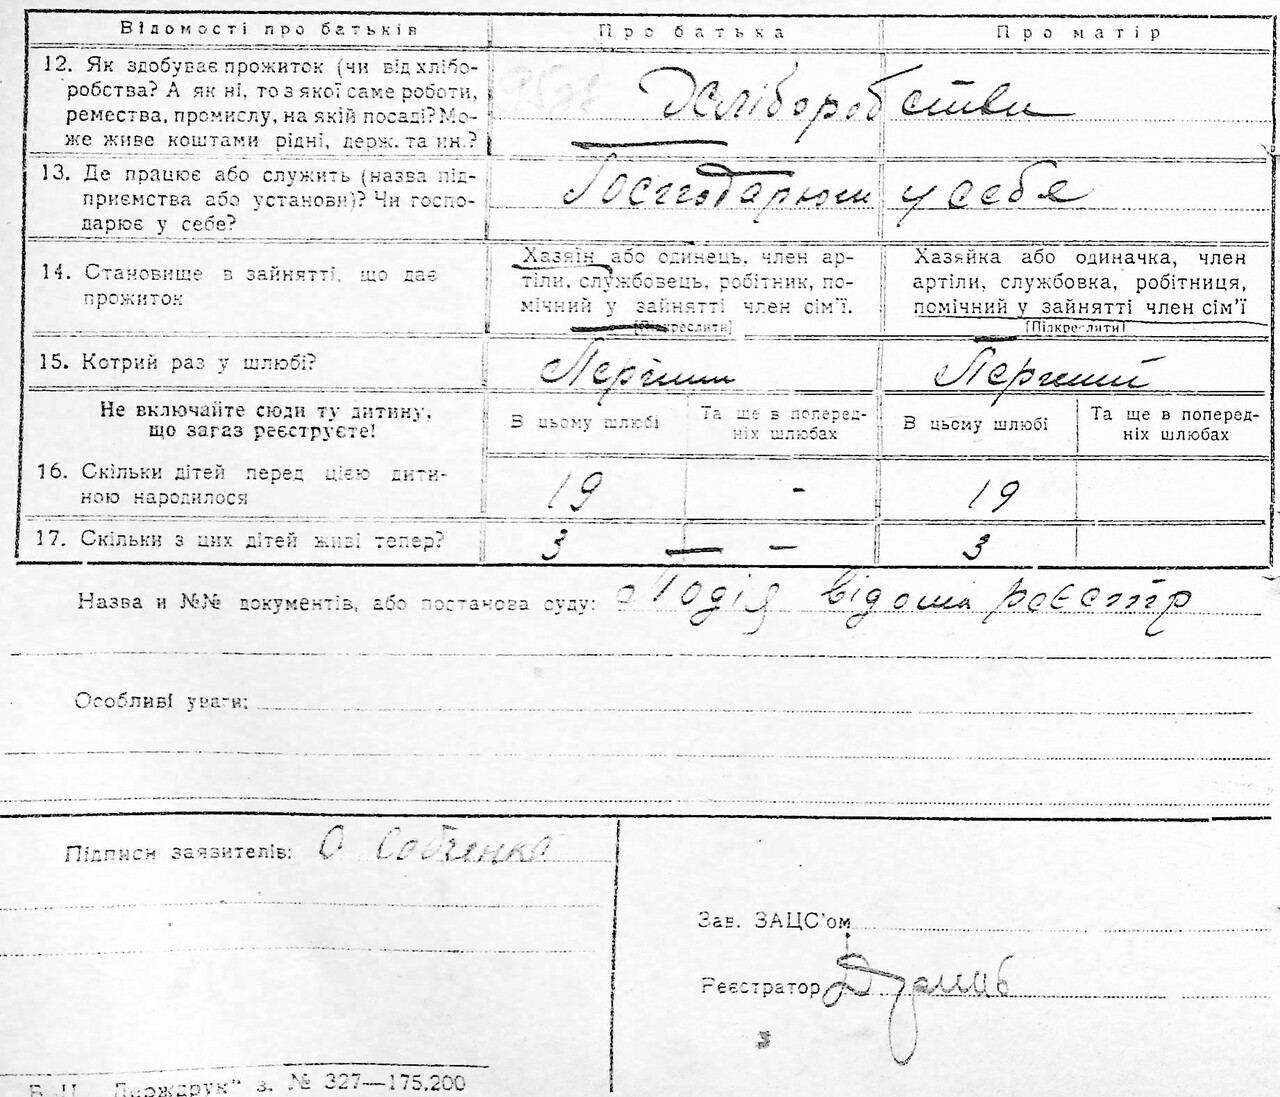 Відомості про батьків Про батька Про матір
12. Як здобуває прожиток (чи від хлібо-
робства? А як ні, то з якої саме роботи,
ремества, промислу, на якій посаді? Мо-
же живе коштами рідні, держ. та ин.?
Хліборобством
13. Де працює або служить (назва під-
приємства або установи)? Чи госпо-
дарює у себе?
Господарюють у себе
14. Становище в зайнятті, що дає
прожиток
Хазяїн або одинець, член ар-
тіли, службовець, робітник, по-
мічний у зайнятті член сім'ї.
[Підкреслити]
Хазяйка або одиначка, член
артіли, службовка, робітниця,
помічний у зайнятті член сім'ї
[Підкреслити]
15. Котрий раз у шлюбі? Перший Перший
Не включайте сюди ту дитину,
що зараз реєструєте!
В цьому шлюбі
Та ще в поперед-
ніх шлюбах
В цьому шлюбі
Та ще в поперед-
ніх шлюбах
16. Скільки дітей перед цією дити-
ною народилося
19 - 19
17. Скільки з цих дітей живі тепер? 3 — 3
Назва и №№ документів, або постанова суду: Подія відома реєстр
Особливі уваги:
Підписи заявителів: О Собченко
Зав. ЗАЦС'ом
Реєстратор
з
"Держдрук" з. № 327—175.200